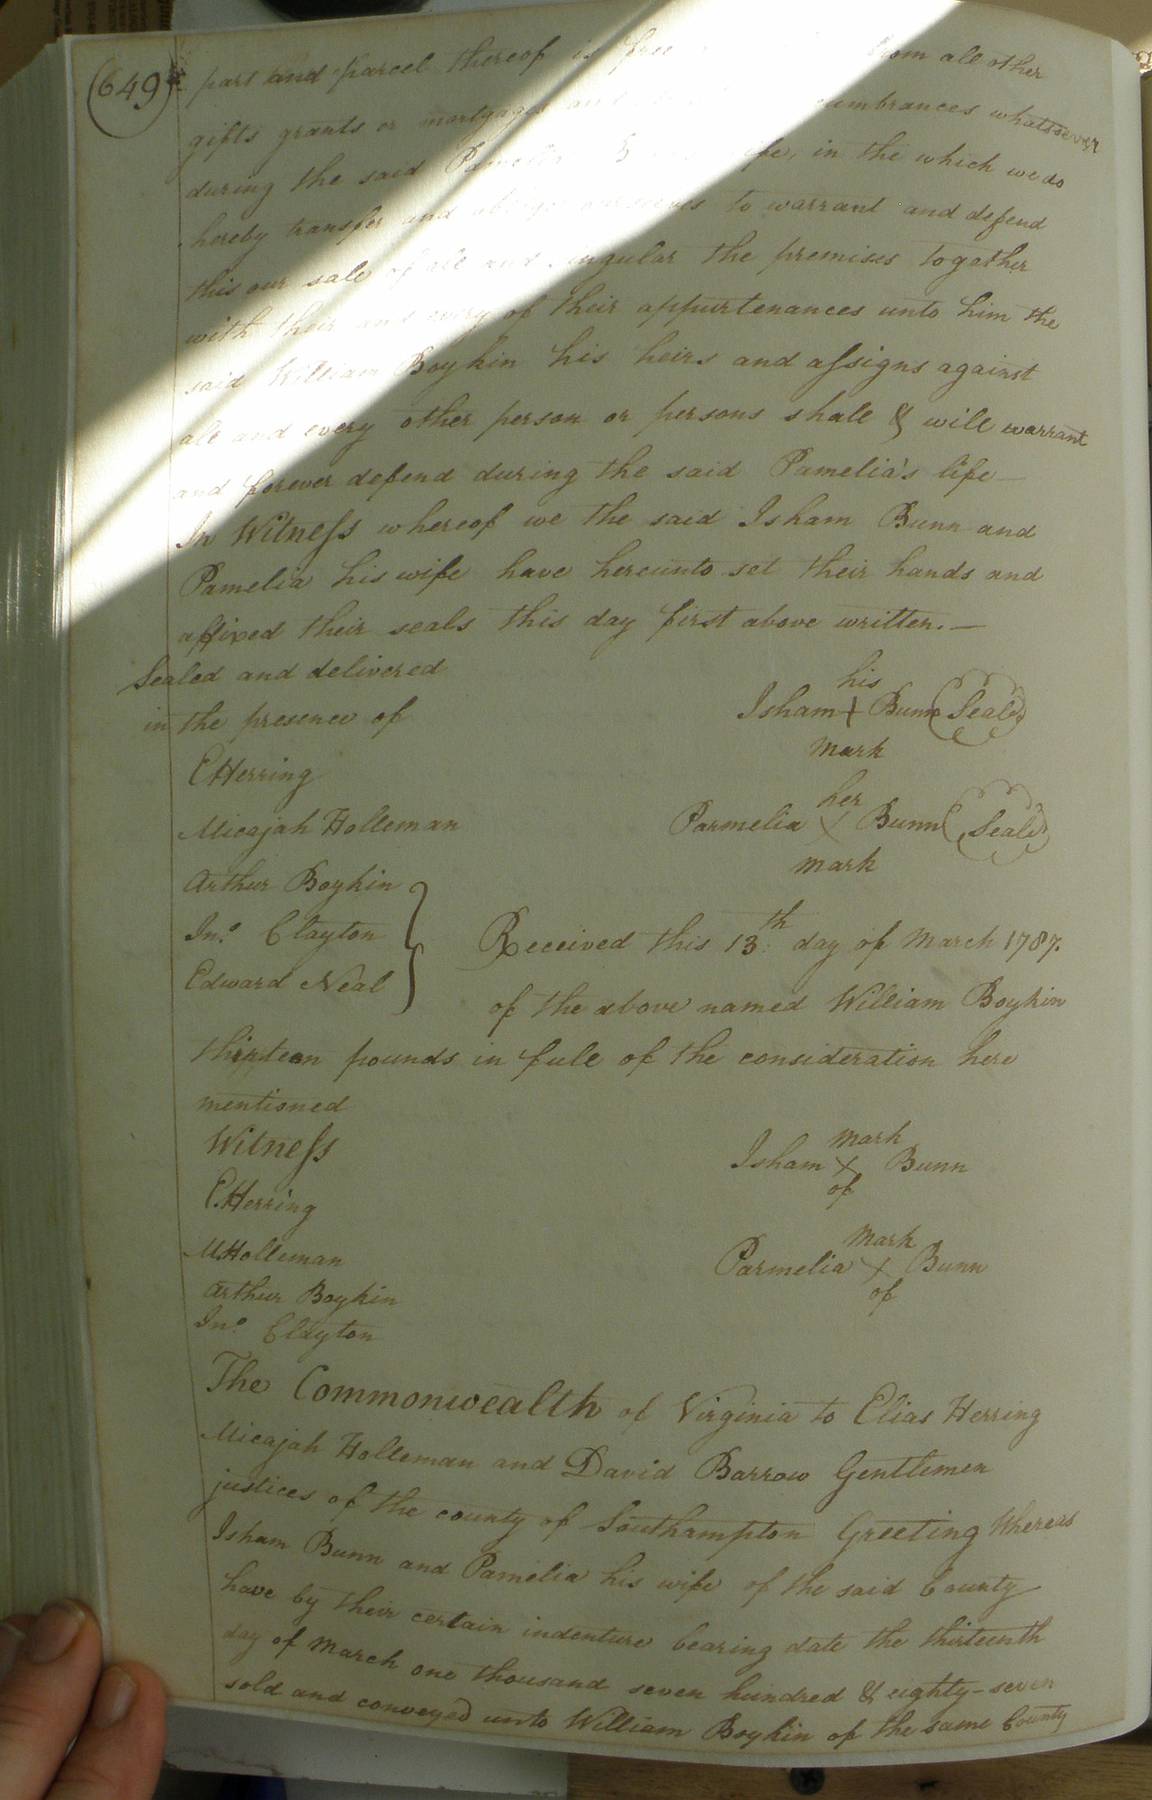 (649)
part and parcel thereof is free from all other
gifts grants or mortgages and cumbrances whatsoever
during the said Pamelia life, in the which we do
hereby transfer and oblige ourselves to warrant and defend
this our sale of all and singular the premises together
with their and every of their appurtenances unto him the
said William Boykin his heirs and assigns against
all and every other person or persons shall & will warrant
and forever defend during the said Pamelia's life—
In Witness whereof we the said Isham Bunn and
Pamelia his wife have hereunto set their hands and
affixed their seals this day first above written.—
Sealed and delivered
in the presence of
his
Isham + Bunn (Seal)
mark
EHerring
Micajah Holleman
her
Parmelia X Bunn (Seal)
mark
Arthur Boykin
Jno. Clayton
Edward Neal
Received this 13th day of March 1787.
of the above named William Boykin
thirteen pounds in full of the consideration here
mentioned
Witness
E.Herring
M.Holleman
Arthur Boykin
Jno. Clayton
mark
Isham X Bunn
of
mark
Parmelia X Bunn
of
The Commonwealth of Virginia to Elias Herring
Micajah Holleman and David Barrow Gentlemen
justices of the county of Southampton Greeting Whereas
Isham Bunn and Pamelia his wife of the said County
have by their certain indenture bearing date the thirteenth
day of March one thousand seven hundred & eighty-seven
sold and conveyed unto William Boykin of the same County